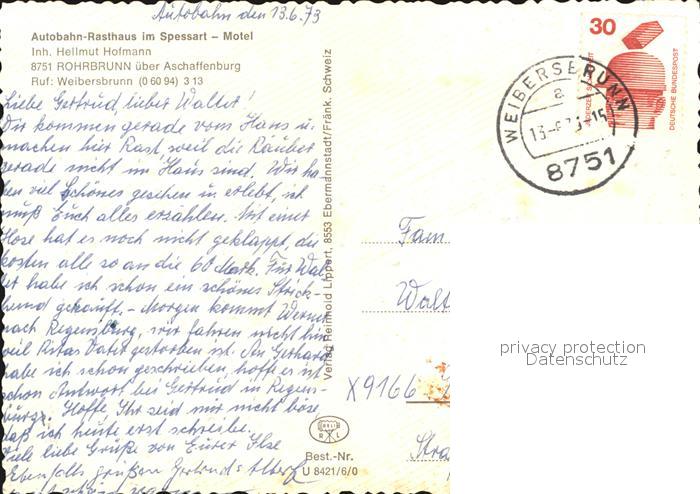 Autobahn den 13.6.73
Autobahn-Rasthaus im Spessart – Motel
Inh. Hellmut Hofmann
8751 ROHRBRUNN über Aschaffenburg
Ruf: Weibersbrunn (0 60 94) 3 13
Liebe Gertrud, lieber Walter!
Wir kommen gerade vom Haus u.
machen hier Rast, weil die Räuber
gerade nicht im Haus sind. Wir ha-
ben viel Schönes gesehen u. erlebt, ich
muß Euch alles erzählen. Mit einer
Hose hat es noch nicht geklappt, die
kosten alle so an die 60 Mark. Für Wal-
ter habe ich schon ein schönes Strick-
hemd gekauft. – Morgen kommt Werner
nach Regensburg, wir fahren nicht hin
weil Ritas Vater gestorben ist. An Gerhard
habe ich schon geschrieben, hoffe es ist
schon Antwort bei Gertrud in Regens-
burg. Hoffe, Ihr seid mir nicht böse,
daß ich heute erst schreibe.
Viele liebe Grüße von Eurer Ilse
Ebenfalls grüßen Gertrud
Verlag Reinhold Lippert, 8553 Ebermannstadt/Fränk. Schweiz
30
DEUTSCHE BUNDESPOST
WEIBERSBRUNN
a
8751
Fam
Walt
X9166
Stra
Best.-Nr.
U 8421/6/0
privacy protection
Datenschutz